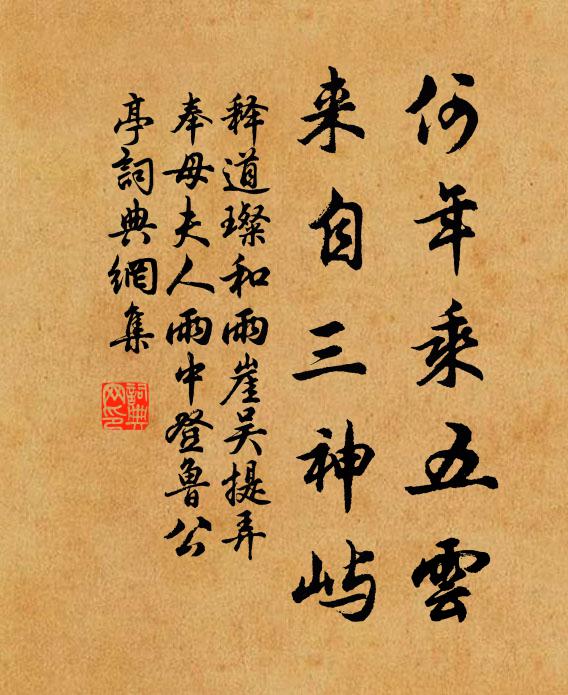 何年乘五雲
来自三神屿
释道璨和雨崖吴提弄
奉母夫人雨中登鲁公
亭詞典網集
詞典网印